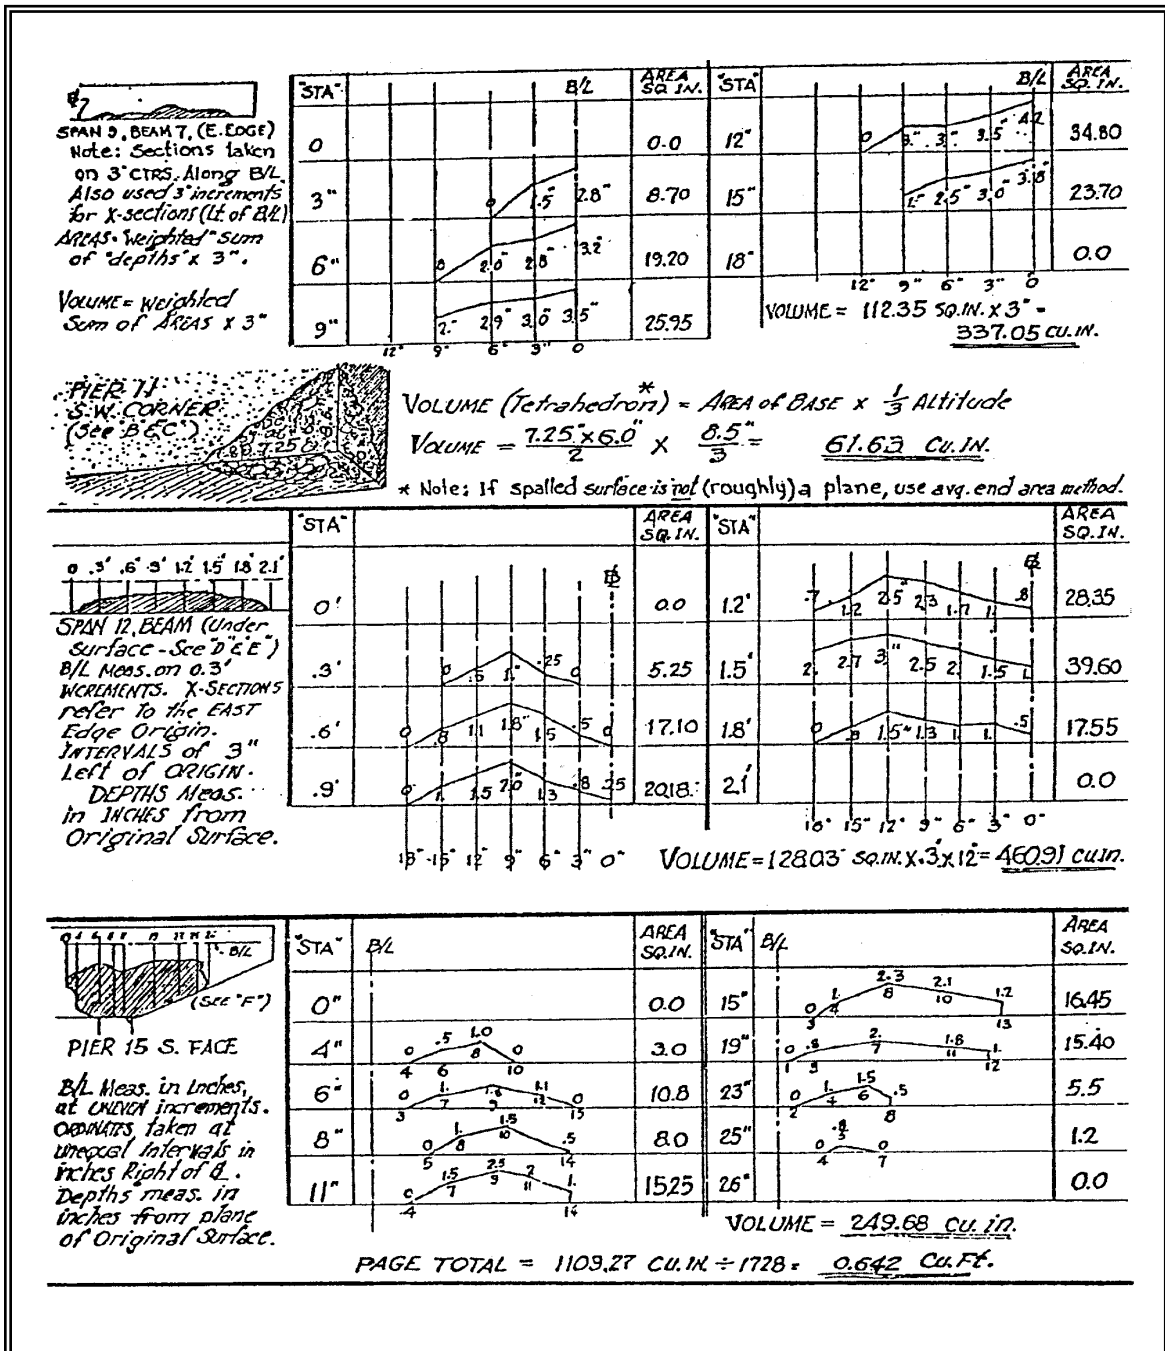 "STA" B/L AREA SQ.IN. "STA" B/L AREA SQ.IN.
SPAN 9, BEAM 7, (E. EDGE)
Note: Sections taken
on 3" CTRS. Along B/L.
Also used 3" increments
for X-sections (Lt. of B/L)
AREAS = "Weighted" Sum
of "depths" x 3".
VOLUME = Weighted
Sum of AREAS x 3"
0 0.0
3" 0 1.5" 2.8" 8.70
6" 0 2.0" 2.8" 3.2" 19.20
9" 2." 2.9" 3.0" 3.5" 25.95
12" 9" 6" 3" 0
12" 0 3." 3." 3.5" 4.2 34.80
15" 1." 2.5" 3.0" 3.8" 23.70
18" 0.0
12" 9" 6" 3" 0
VOLUME = 112.35 SQ.IN. x 3" =
337.05 CU.IN.
PIER 11
S.W. CORNER
(See B & C")
7.25
VOLUME (Tetrahedron*) = AREA of BASE x 1/3 Altitude
VOLUME = 7.25" x 6.0" / 2 x 8.5" / 3 = 61.63 CU.IN.
* Note: If spalled surface is not (roughly) a plane, use avg. end area method.
"STA" AREA SQ.IN. "STA" AREA SQ.IN.
0 .3' .6' .9' 1.2' 1.5' 1.8' 2.1'
SPAN 12, BEAM (Under
surface - See "D" & "E")
B/L Meas. on 0.3'
INCREMENTS. X-SECTIONS
refer To the EAST
Edge Origin.
INTERVALS of 3"
Left of ORIGIN.
DEPTHS Meas.
in INCHES from
Original Surface.
0' 0.0
.3' 0 .6 1." .25 0 5.25
.6' 0 .8 1.1 1.8" 1.5 .5 0 17.10
.9' 1. 1.5 2.0" 1.3 .8 .25 20.18
18" 15" 12" 9" 6" 3" 0"
1.2' .7 1.2 2.5" 2.3 1.7 1. .8 28.35
1.5' 2. 2.7 3." 2.5 2. 1.5 1. 39.60
1.8' 0 .9 1.5" 1.3 1. 1. .5 17.55
2.1' 0.0
18" 15" 12" 9" 6" 3" 0"
VOLUME = 128.03 SQ.IN. x .3' x 12" = 460.91 cu.in.
"STA" B/L AREA SQ.IN. "STA" B/L AREA SQ.IN.
B/L
(SEE "F")
PIER 15 S. FACE
B/L Meas. in Inches,
at UNEVEN increments.
ORDINATES taken at
unequal Intervals in
inches Right of B/L.
Depths meas. in
inches from plane
of Original Surface.
0" 0.0
4" 0 .5 1.0 0 3.0
4 6 8 10
6" 0 1. 1.8 1.1 0 10.8
3 7 9 12 15
8" 0 1. 1.5 .5 8.0
5 8 10 14
11" 0 1.5 2.5 2 1. 15.25
4 7 9 11 14
15" 0 1. 2.3 2.1 1.2 16.45
3 4 8 10 13
19" 0 .8 2. 1.8 1. 15.40
1 3 7 11 12
23" 0 1. 1.5 .5 5.5
2 4 6 8
25" 0 .8 0 1.2
4 5 7
26" 0.0
VOLUME = 249.68 Cu. in.
PAGE TOTAL = 1109.27 CU.IN ÷ 1728 = 0.642 Cu.Ft.